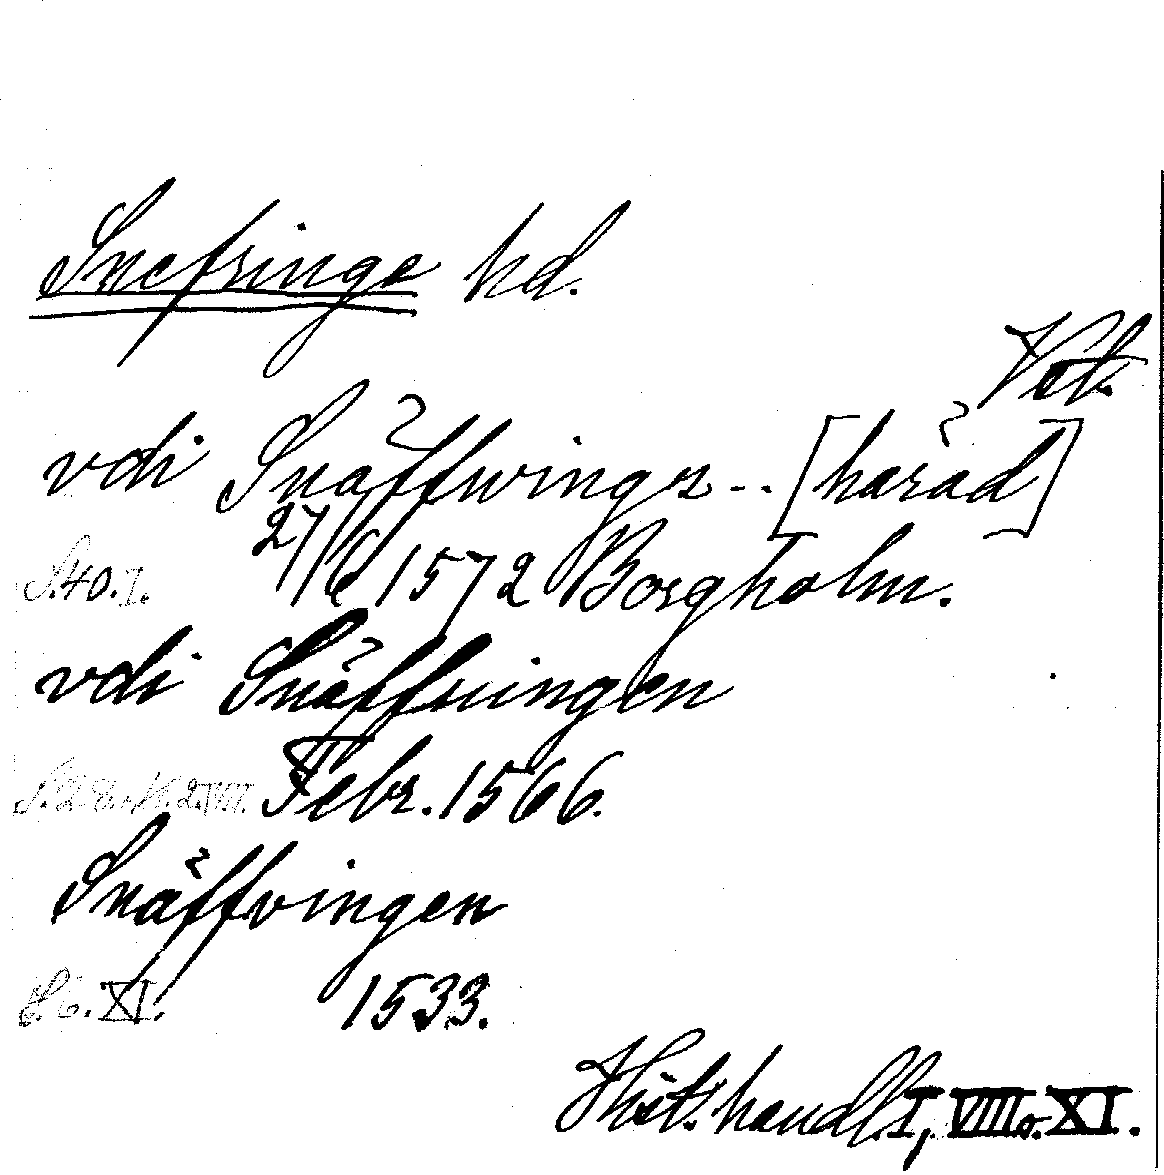 Snefringe hd.
Vstm.
vdi Snäffwinge... [härad]
S. 40. I. 27/6 1572 Borgholm.
vdi Snäffuingen
Febr. 1566.
Snäffvingen
S. 6. XI. 1533.
Hist. handl. I, VIII o. XI.